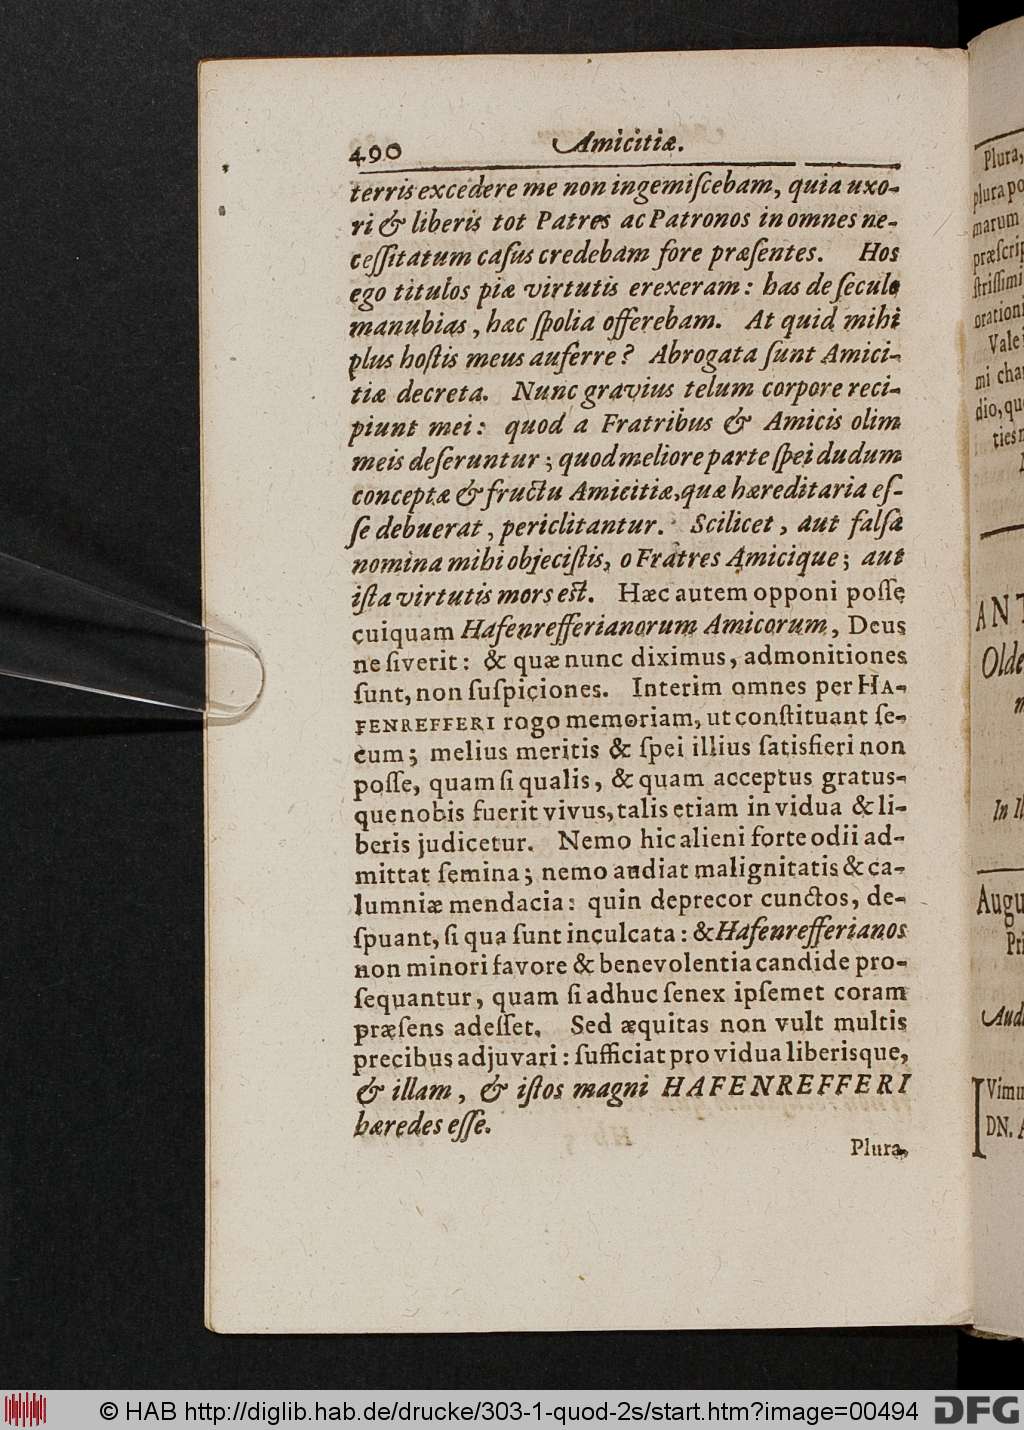 490 Amicitiæ.
terris excedere me non ingemiſcebam, quia uxo-
ri & liberis tot Patres ac Patronos in omnes ne-
ceſſitatum caſus credebam fore præſentes. Hos
ego titulos piæ virtutis erexeram: has de ſeculo
manubias, hæc ſpolia offerebam. At quid mihi
plus hoſtis meus auferre? Abrogata ſunt Amici-
tiæ decreta. Nunc gravius telum corpore reci-
piunt mei: quod a Fratribus & Amicis olim
meis deſeruntur; quod meliore parte ſpei dudum
conceptæ & fructu Amicitiæ, quæ hæreditaria eſ-
ſe debuerat, periclitantur. Scilicet, aut falſa
nomina mihi objeciſtis, o Fratres Amicique; aut
iſta virtutis mors est. Hæc autem opponi poſſe
cuiquam Hafenrefferianorum Amicorum, Deus
ne ſiverit: & quæ nunc diximus, admonitiones
ſunt, non ſuſpiciones. Interim omnes per HA-
FENREFFERI rogo memoriam, ut conſtituant ſe-
cum; melius meritis & ſpei illius ſatisfieri non
poſſe, quam ſi qualis, & quam acceptus gratus-
que nobis fuerit vivus, talis etiam in vidua & li-
beris judicetur. Nemo hic alieni forte odii ad-
mittat ſemina; nemo audiat malignitatis & ca-
lumniæ mendacia: quin deprecor cunctos, de-
ſpuant, ſi qua ſunt inculcata: & Hafenrefferianos
non minori favore & benevolentia candide pro-
ſequantur, quam ſi adhuc ſenex ipſemet coram
præſens adeſſet. Sed æquitas non vult multis
precibus adjuvari: ſufficiat pro vidua liberisque,
& illam, & iſtos magni HAFENREFFERI
hæredes eſſe.
Plura,
Plura,
plura po
marum
præſcrip
ſtriſſimi
orationi
Vale
mi cha
dio, qu
ties
ANT
Olde
In Il
Augu
Pri
Aud
Vimu
DN. A
© HAB http://diglib.hab.de/drucke/303-1-quod-2s/start.htm?image=00494
DFG